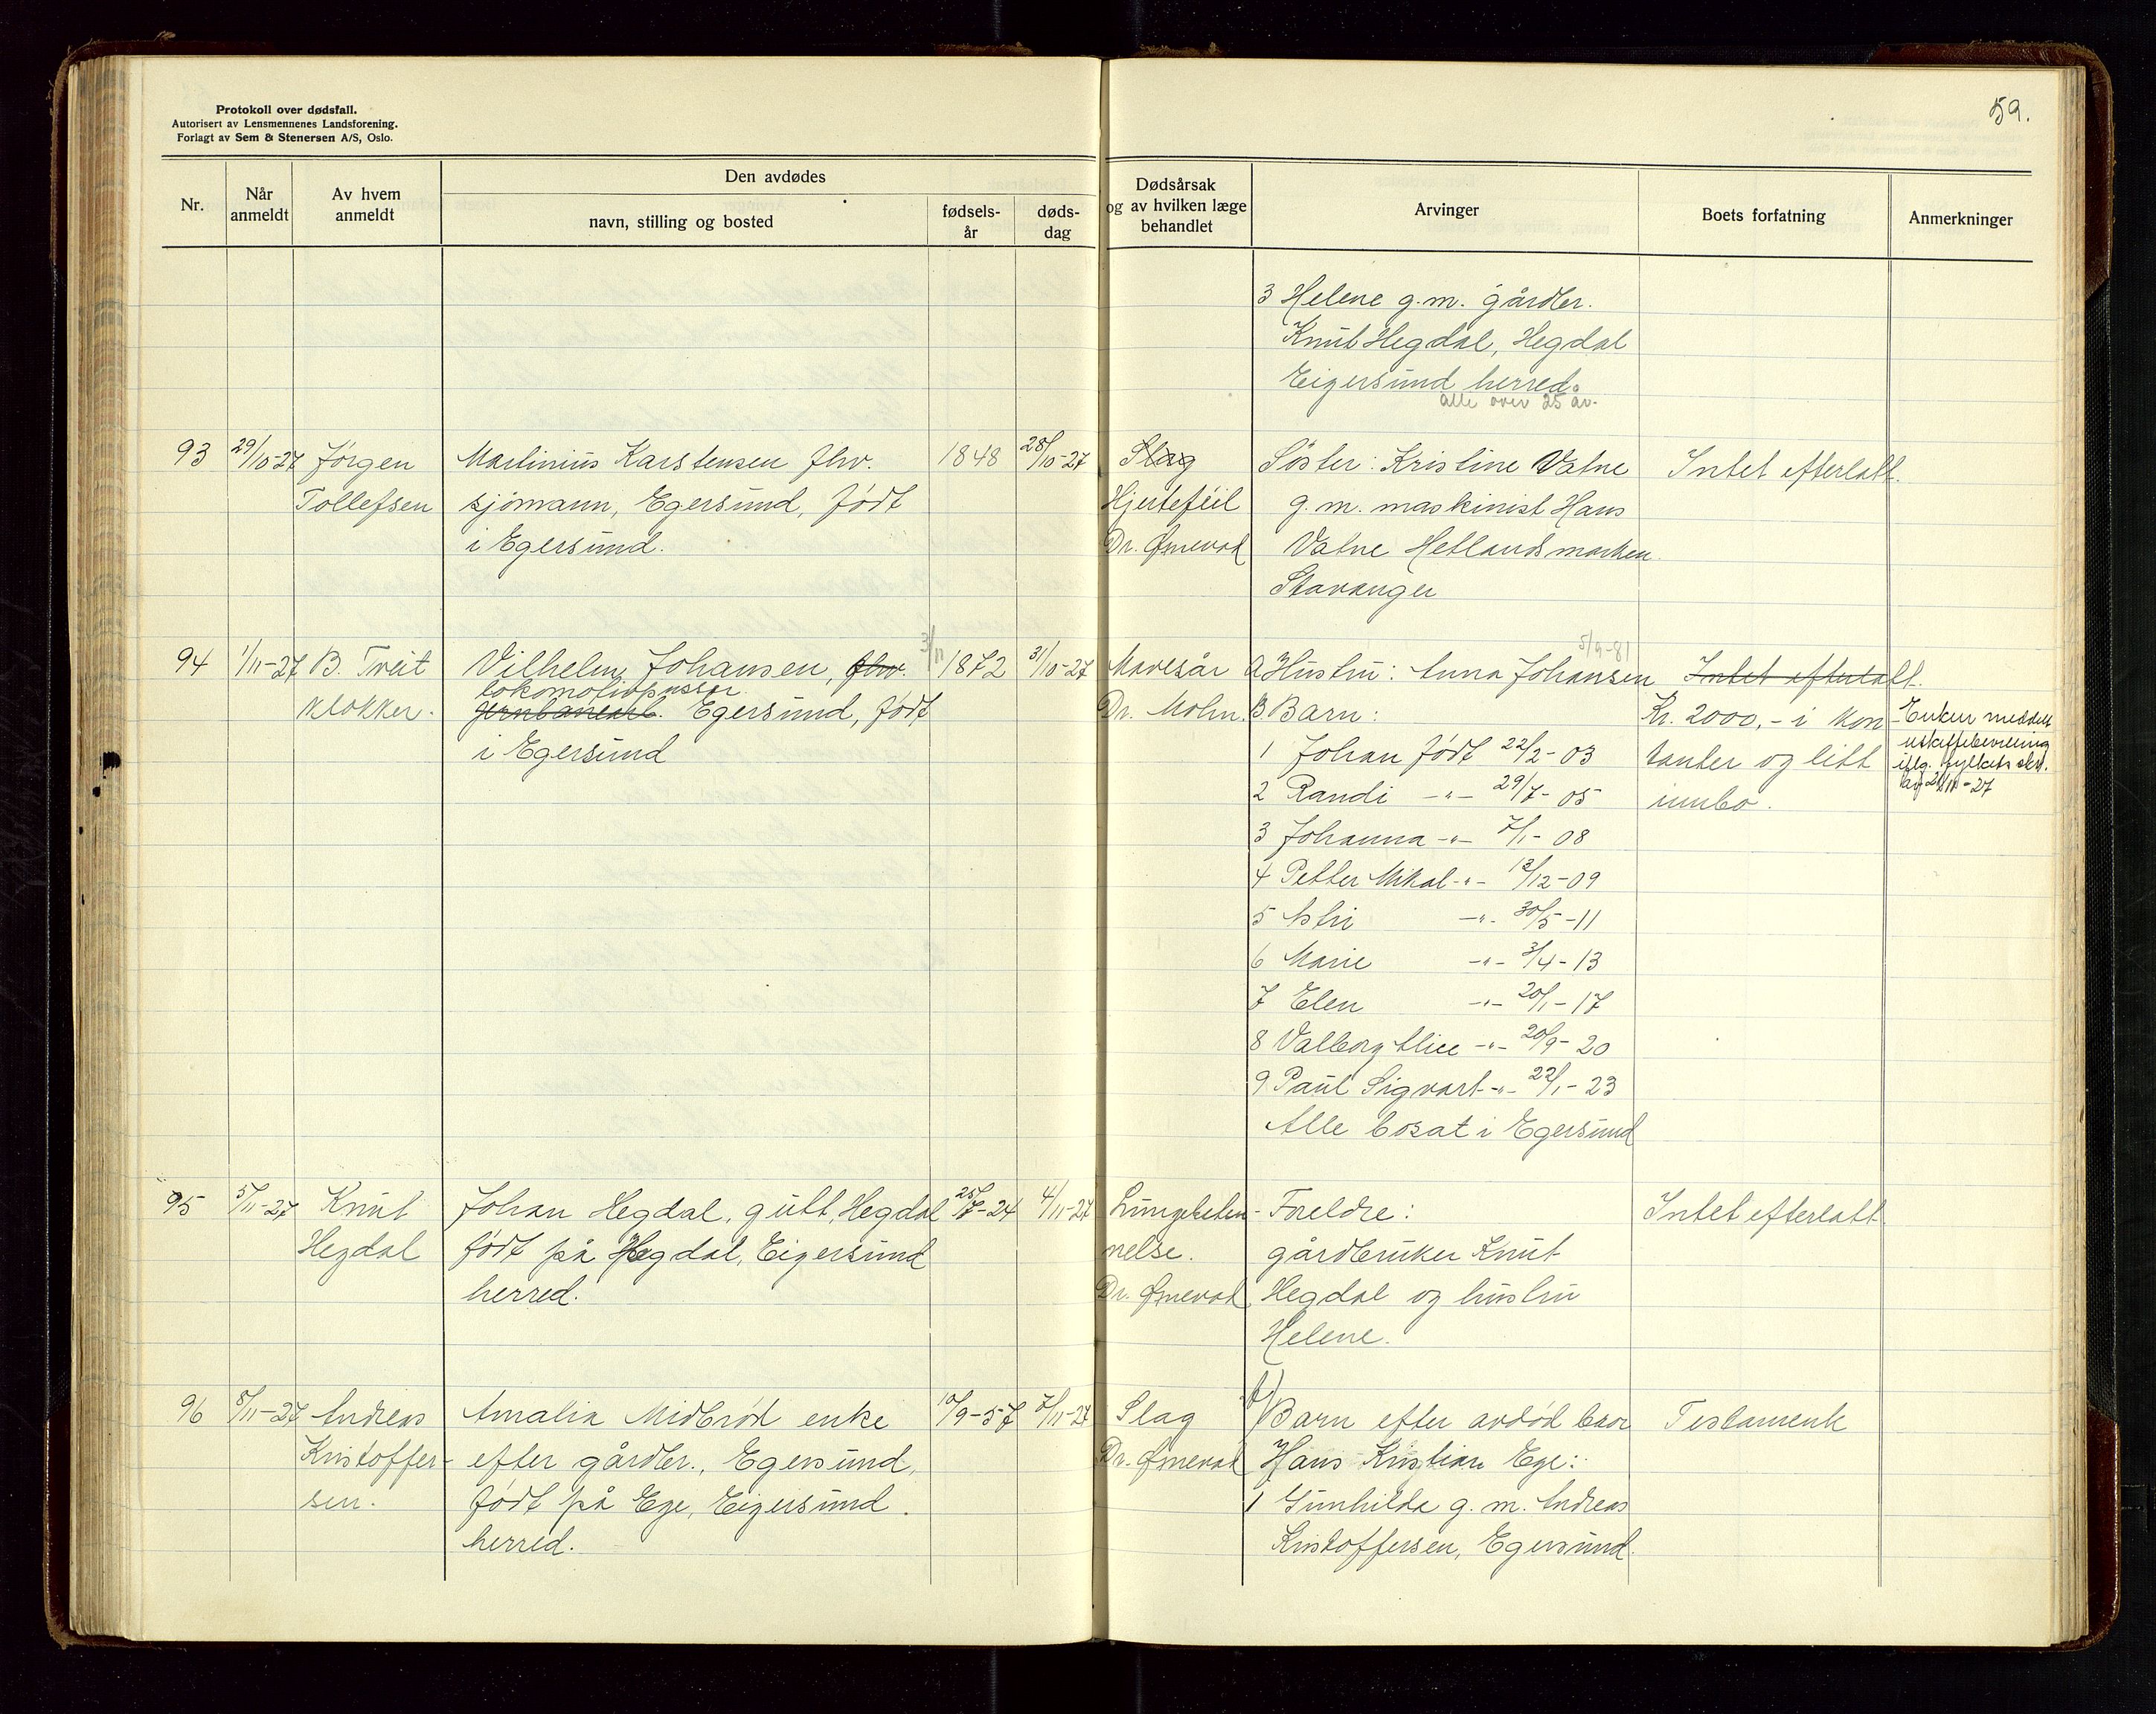 Protokoll over dødsfall.
Autorisert av Lensmennenes Landsforening.
Forlagt av Sem & Stenersen A/S, Oslo.
59.
Nr.
Når anmeldt
Av hvem anmeldt
Den avdødes
navn, stilling og bosted
fødsels-år
døds-dag
Dødsårsak og av hvilken læge behandlet
Arvinger
Boets forfatning
Anmerkninger
3 Helene g.m. gårdbr.
Knut Hegdal, Hegdal
Eigersund herred.
alle over 25 år.
93 29/10-27 Jörgen
Tollefsen
Martinius Karstensen fhv.
sjömann, Egersund, født
i Egersund.
1848 28/10-27
Slag
Hjertefeil
Dr.
Söster: Kristine Vatne
g.m. maskinist Hans
Vatne Hetlandsmarken
Stavanger
Intet efterlatt.
94 1/11-27 B. Tveit
klokker.
Vilhelm Johansen, fhv.
lokomotivpusser
jernbanearb. Egersund, født
i Egersund
3/11 1872 31/10-27
Mavesår
Dr. Mohn.
5/9-81
A Hustru: Anna Johansen
B Barn:
1 Johan født 22/2-03
2 Randi -"- 29/7-05
3 Johanna -"- 7/1-08
4 Petter Mikal -"- 13/12-09
5 Astri -"- 30/5-11
6 Marie -"- 3/4-13
7 Elen -"- 20/1-17
8 Valborg Alice -"- 20/9-20
9 Paul Sigvart -"- 22/1-23
Alle bosat i Egersund
Intet efterlatt.
Kr. 2000,- i kon-
tanter og litt
innbo.
Enken meddelt
uskiftebevilling
iflg. fylkets skr.
av 21/11-27
95 5/11-27 Knut
Hegdal
Johan Hegdal, gutt, Hegdal
født på Hegdal, Eigersund
herred.
25/7-24 4/11-27
Lungebeten-
nelse.
Dr.
Foreldre:
gårdbruker Knut
Hegdal og hustru
Helene.
Intet efterlatt
96 8/11-27 Andreas
Kristoffer-
sen.
Amalia Midbrød enke
efter gårdbr., Egersund,
født på Ege, Eigersund.
herred.
10/9-57 7/11-27
Slag
Dr.
A) Barn efter avdød bror
Hans Kristian Ege:
1 Gunhilda g.m. Andreas
Kristoffersen, Egersund.
Testament